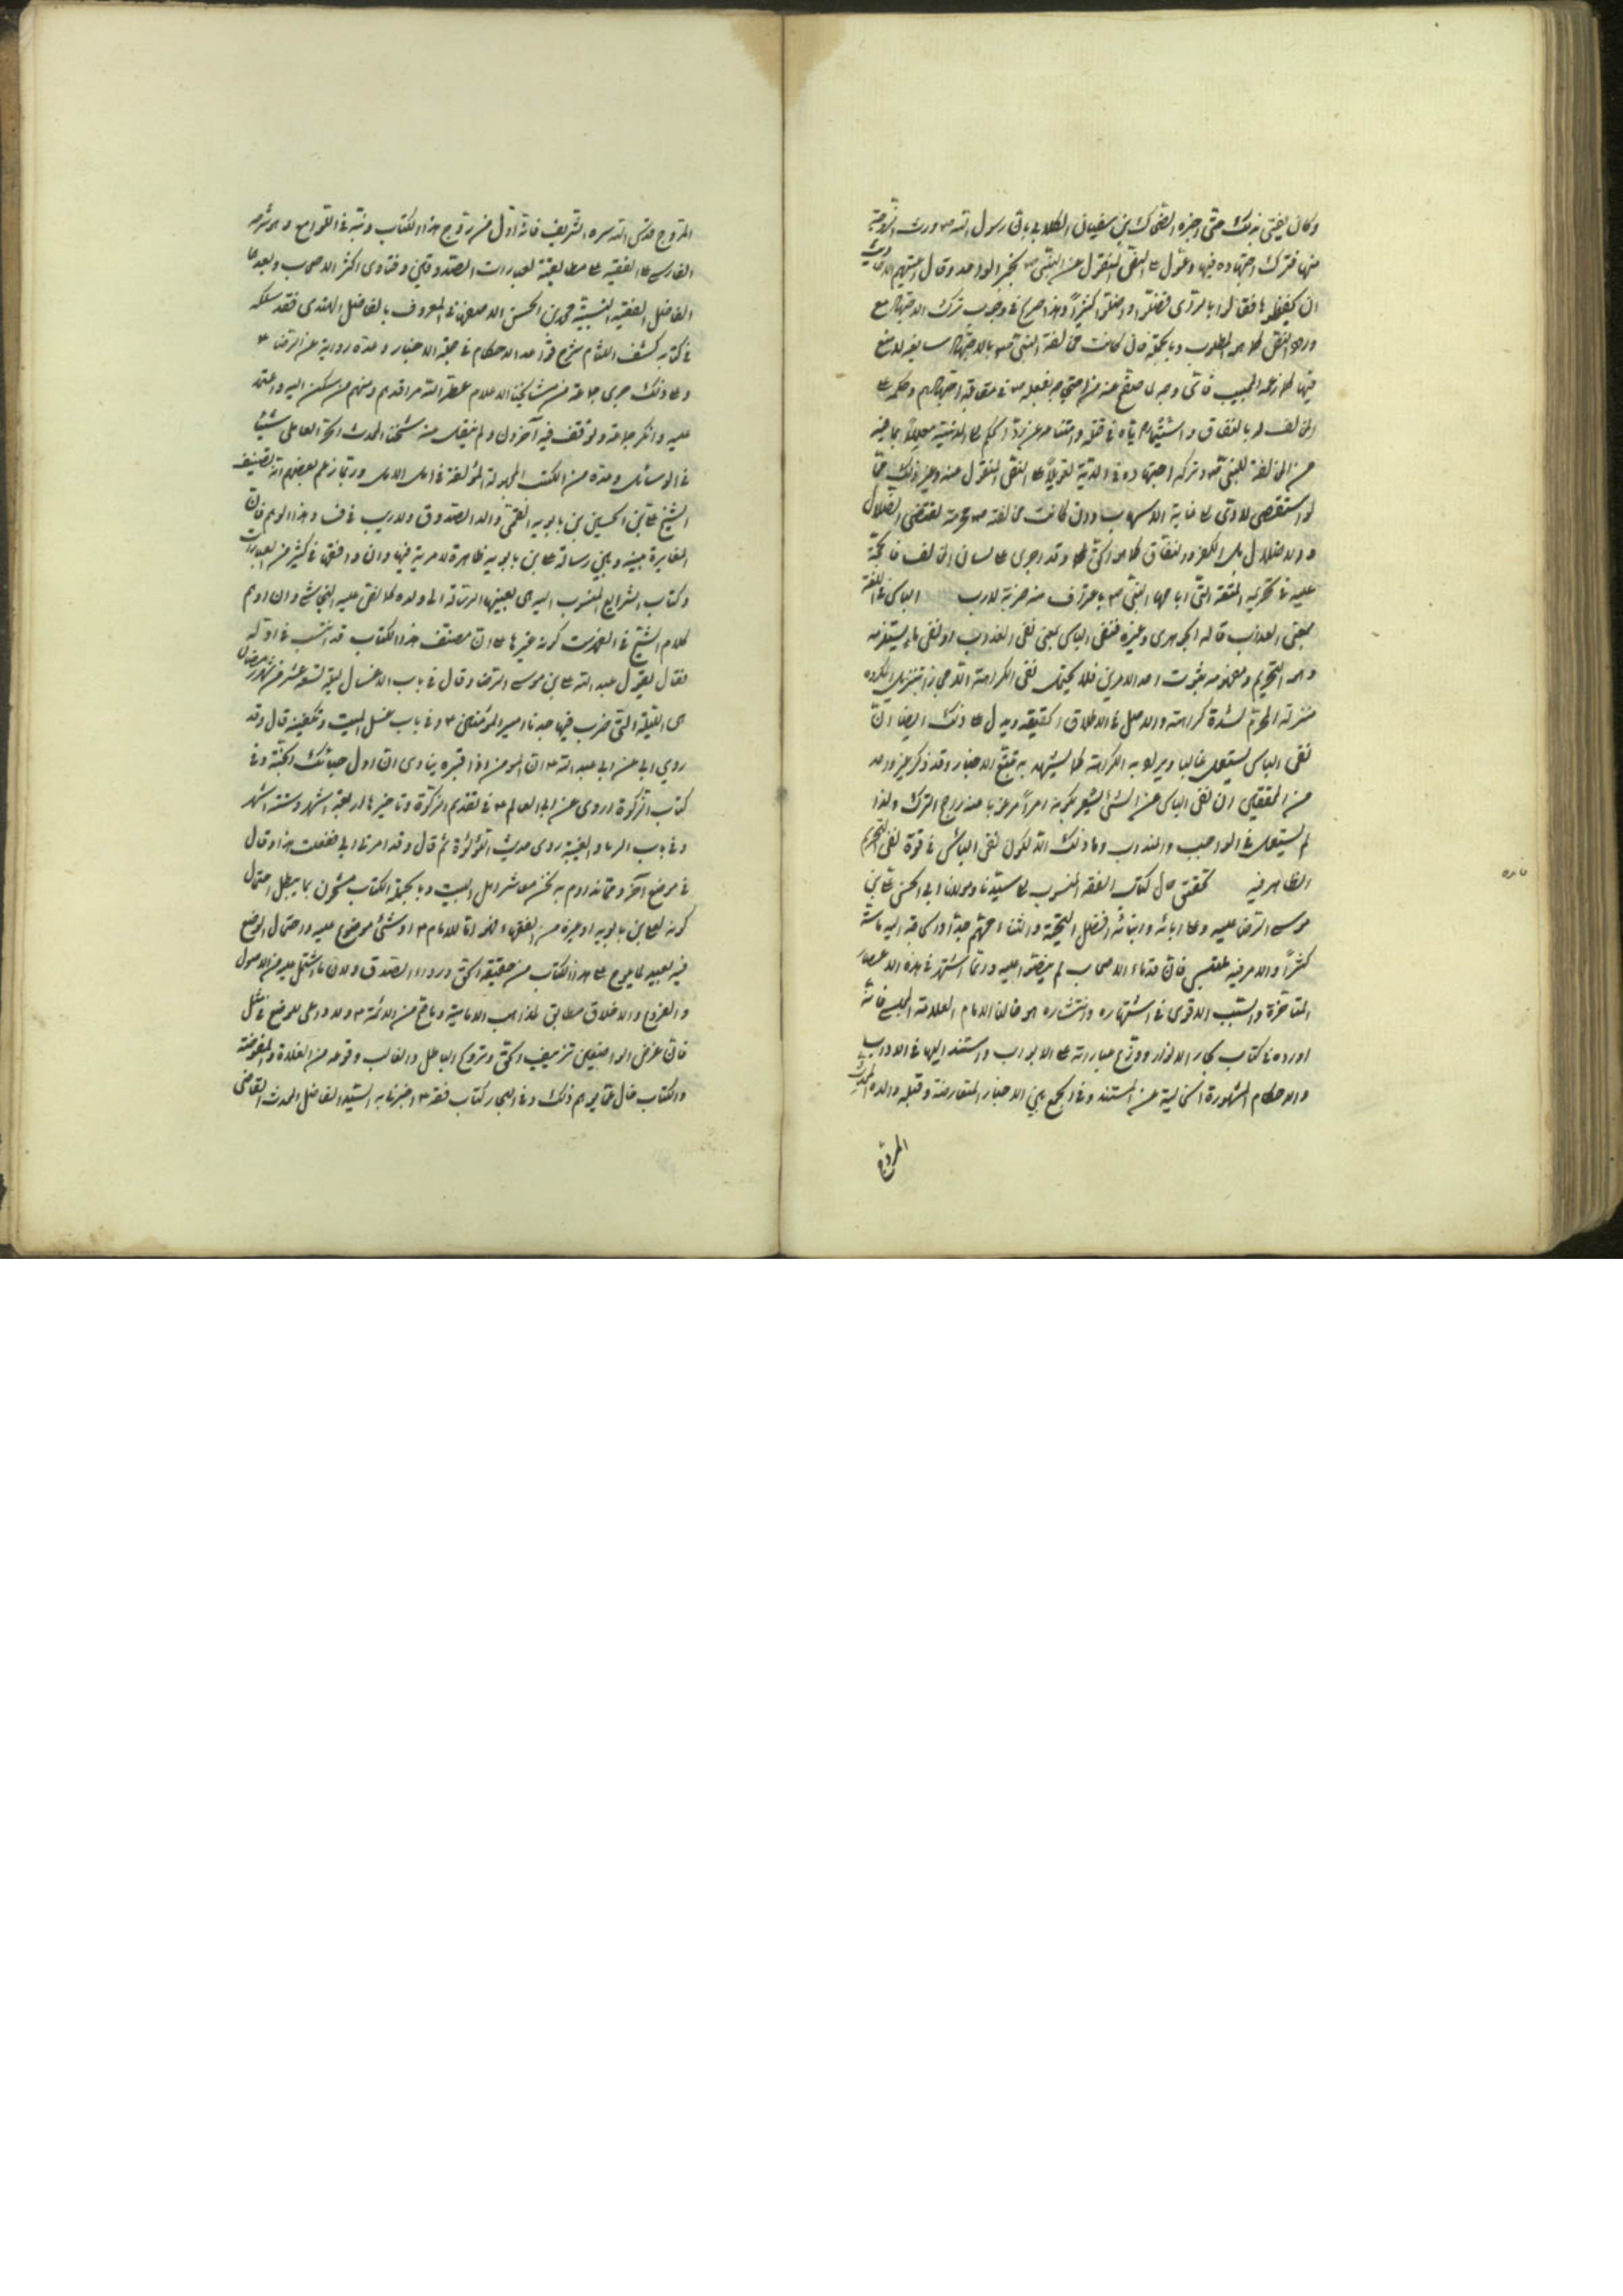 وكان يفتي بذلك حتى اخبره الضحاك بن سفيان الكلابي بان رسول الله ص ورث الزوجة
منها فترك اجتهاده فيها وعول على النقل المنقول عن النبي ص بخبر الواحد وقال اعيتهم الاحاديث
ان يحفظوها فقالوا بالرأى فضلوا واضلوا كثيراً وهذا صريح في وجوب ترك الاجتهاد مع
ورود النقل كما هو المطلوب وبالجملة فان كانت مخالفة النبي ص بالاجتهاد سايغة لا منع
فيها كما زعمه المجيب
المخالف له بالنفاق
من المخالفة للنبي ص وتركه اجتهاده في الدية تعويلاً على النقل المنقول عنه وغير ذلك مما
لو استقصى لادى الى غاية الاسهاب وان كانت مخالفته ص محرمة تقتضي الضلال
والاضلال بل الكفر والنفاق كما هو الحق كما وقد اجرى على لسان المخالف فالحجة
عليه في تحريمه المتعة التي اباحها النبي ص باعتراف منه لازمة لا ريب الباس في اللغة
بمعنى العذاب قاله الجوهرى وغيره فنفي الباس بمعنى نفي العذاب او نفي ما يستلزمه
وهو التحريم
منزلة المحرم لشدة كراهته والاصل في الاطلاق الحقيقة ويدل على ذلك ايضا ان
نفي الباس يستعمل غالبا ويراد به الكراهة كما يشهد به تتبع الاخبار وقد ذكر غير واحد
من المحققين ان نفي الباس عن الشئ يشعر بكونه امراً مرغوبا عنه راجح الترك ولذا
لم يستعمل في الواجب والمندوب وما ذلك الا لكون نفي الباس في قوة نفي التحريم
الظاهر فيه تحقيق حال كتاب الفقه المنسوب الى سيدنا ومولانا ابي الحسن علي بن
موسى الرضا عليه وعلى ابائه وابنائه افضل التحية والثناء مهم جدا والحاجة اليه ماسة
كثيراً والامر فيه ملتبس فان قدماء الاصحاب لم ينصوا عليه وربما اشتهر في هذه الاعصار
المتاخرة والسبب الاقوى في اشتهاره وانتشاره هو خالنا الامام العلامة المجلسي فانه
اورده في كتاب بحار الانوار ووزع عباراته على الابواب واستند اليها في الاداب
والاحكام المشهورة الخالية عن المستند وفي الجمع بين الاخبار المتعارضة وقبله والده المحدث
المروج
المروج قدس الله سره الشريف فانه اول من روج هذا الكتاب ونبه في اللوامع وهو شرحه
الفارسي على الفقيه على مطابقته لعبارات الصدوقين وفتاوى اكثر الاصحاب وبعدهما
الفاضل الفقيه النبيه محمد بن الحسن الاصفهاني المعروف بالفاضل الهندى فقد سلكه
في كتابه كشف اللثام شرح قواعد الاحكام في جملة الاخبار وعده رواية عن الرضا ع
وعلى ذلك جرى جماعة من مشايخنا الاعلام عطر الله مراقدهم ومنهم من سكن اليه واعتمد
عليه وانكر جماعة وتوقف فيه آخرون ولم ينقل منه شيخنا المحدث الحر العاملي شيئا
في الوسائل وعده من الكتب المجهولة المؤلفة في امل الامل وربما زعم بعضهم انه تصنيف
الشيخ علي بن الحسين بن بابويه القمي والد الصدوق ولا ريب في فساد هذا الوهم فان
المغايرة بينه وبين رسالة علي بن بابويه ظاهرة لا مرية فيها وان وافقها في كثير من العبارات
وكتاب الشرايع المنسوب اليه هى بعينها الرسالة الى ولده كما نص عليه النجاشي وان اوهم
كلام الشيخ في الفهرست كونه غيرها على ان مصنف هذا الكتاب قد انتسب في اوله
فقال يقول عبد الله علي بن موسى الرضا وقال في باب الاغسال ليلة تسع عشر من شهر رمضان
هى الليلة التي ضرب فيها جدنا امير المؤمنين ع وفي باب غسل الميت وتكفينه قال وقد
روى ابي عن ابي عبد الله ع ان المؤمن اذا قبره ينادى ان اول حبائك الجنة وفي
كتاب الزكوة اروى عن ابي العالم ع في تقديم الزكوة وتاخيرها اربعة اشهر وستة اشهر
وفي باب الربا والغيبة روى حديث اللؤلؤة ثم قال وقد امرني ابي ففعلت هذا وقال
في موضع آخر ومما نداوم به نحن معاشر اهل البيت وبالجملة الكتاب مشحون بما يبطل احتمال
كونه لعلي بن بابويه او غيره من الفقهاء فهو اما للامام ع او شئ موضوع عليه واحتمال الوضع
فيه بعيد لما يلوح على هذا الكتاب من حقيقة الحق ورواء الصدق ولان ما اشتمل عليه من الاصول
والفروع والاخلاق مطابق لمذاهب الامامية وما صح من الائمة ع ولا داعى للوضع في مثل
فان غرض الواضعين تزييف الحق وترويج الباطل والغالب وقوعه من الغلاة والمفوضة
والكتاب خال عما يوهم ذلك وفي البحار كتاب فقه ع اخبرنا به السيد الفاضل المحدث القاضى